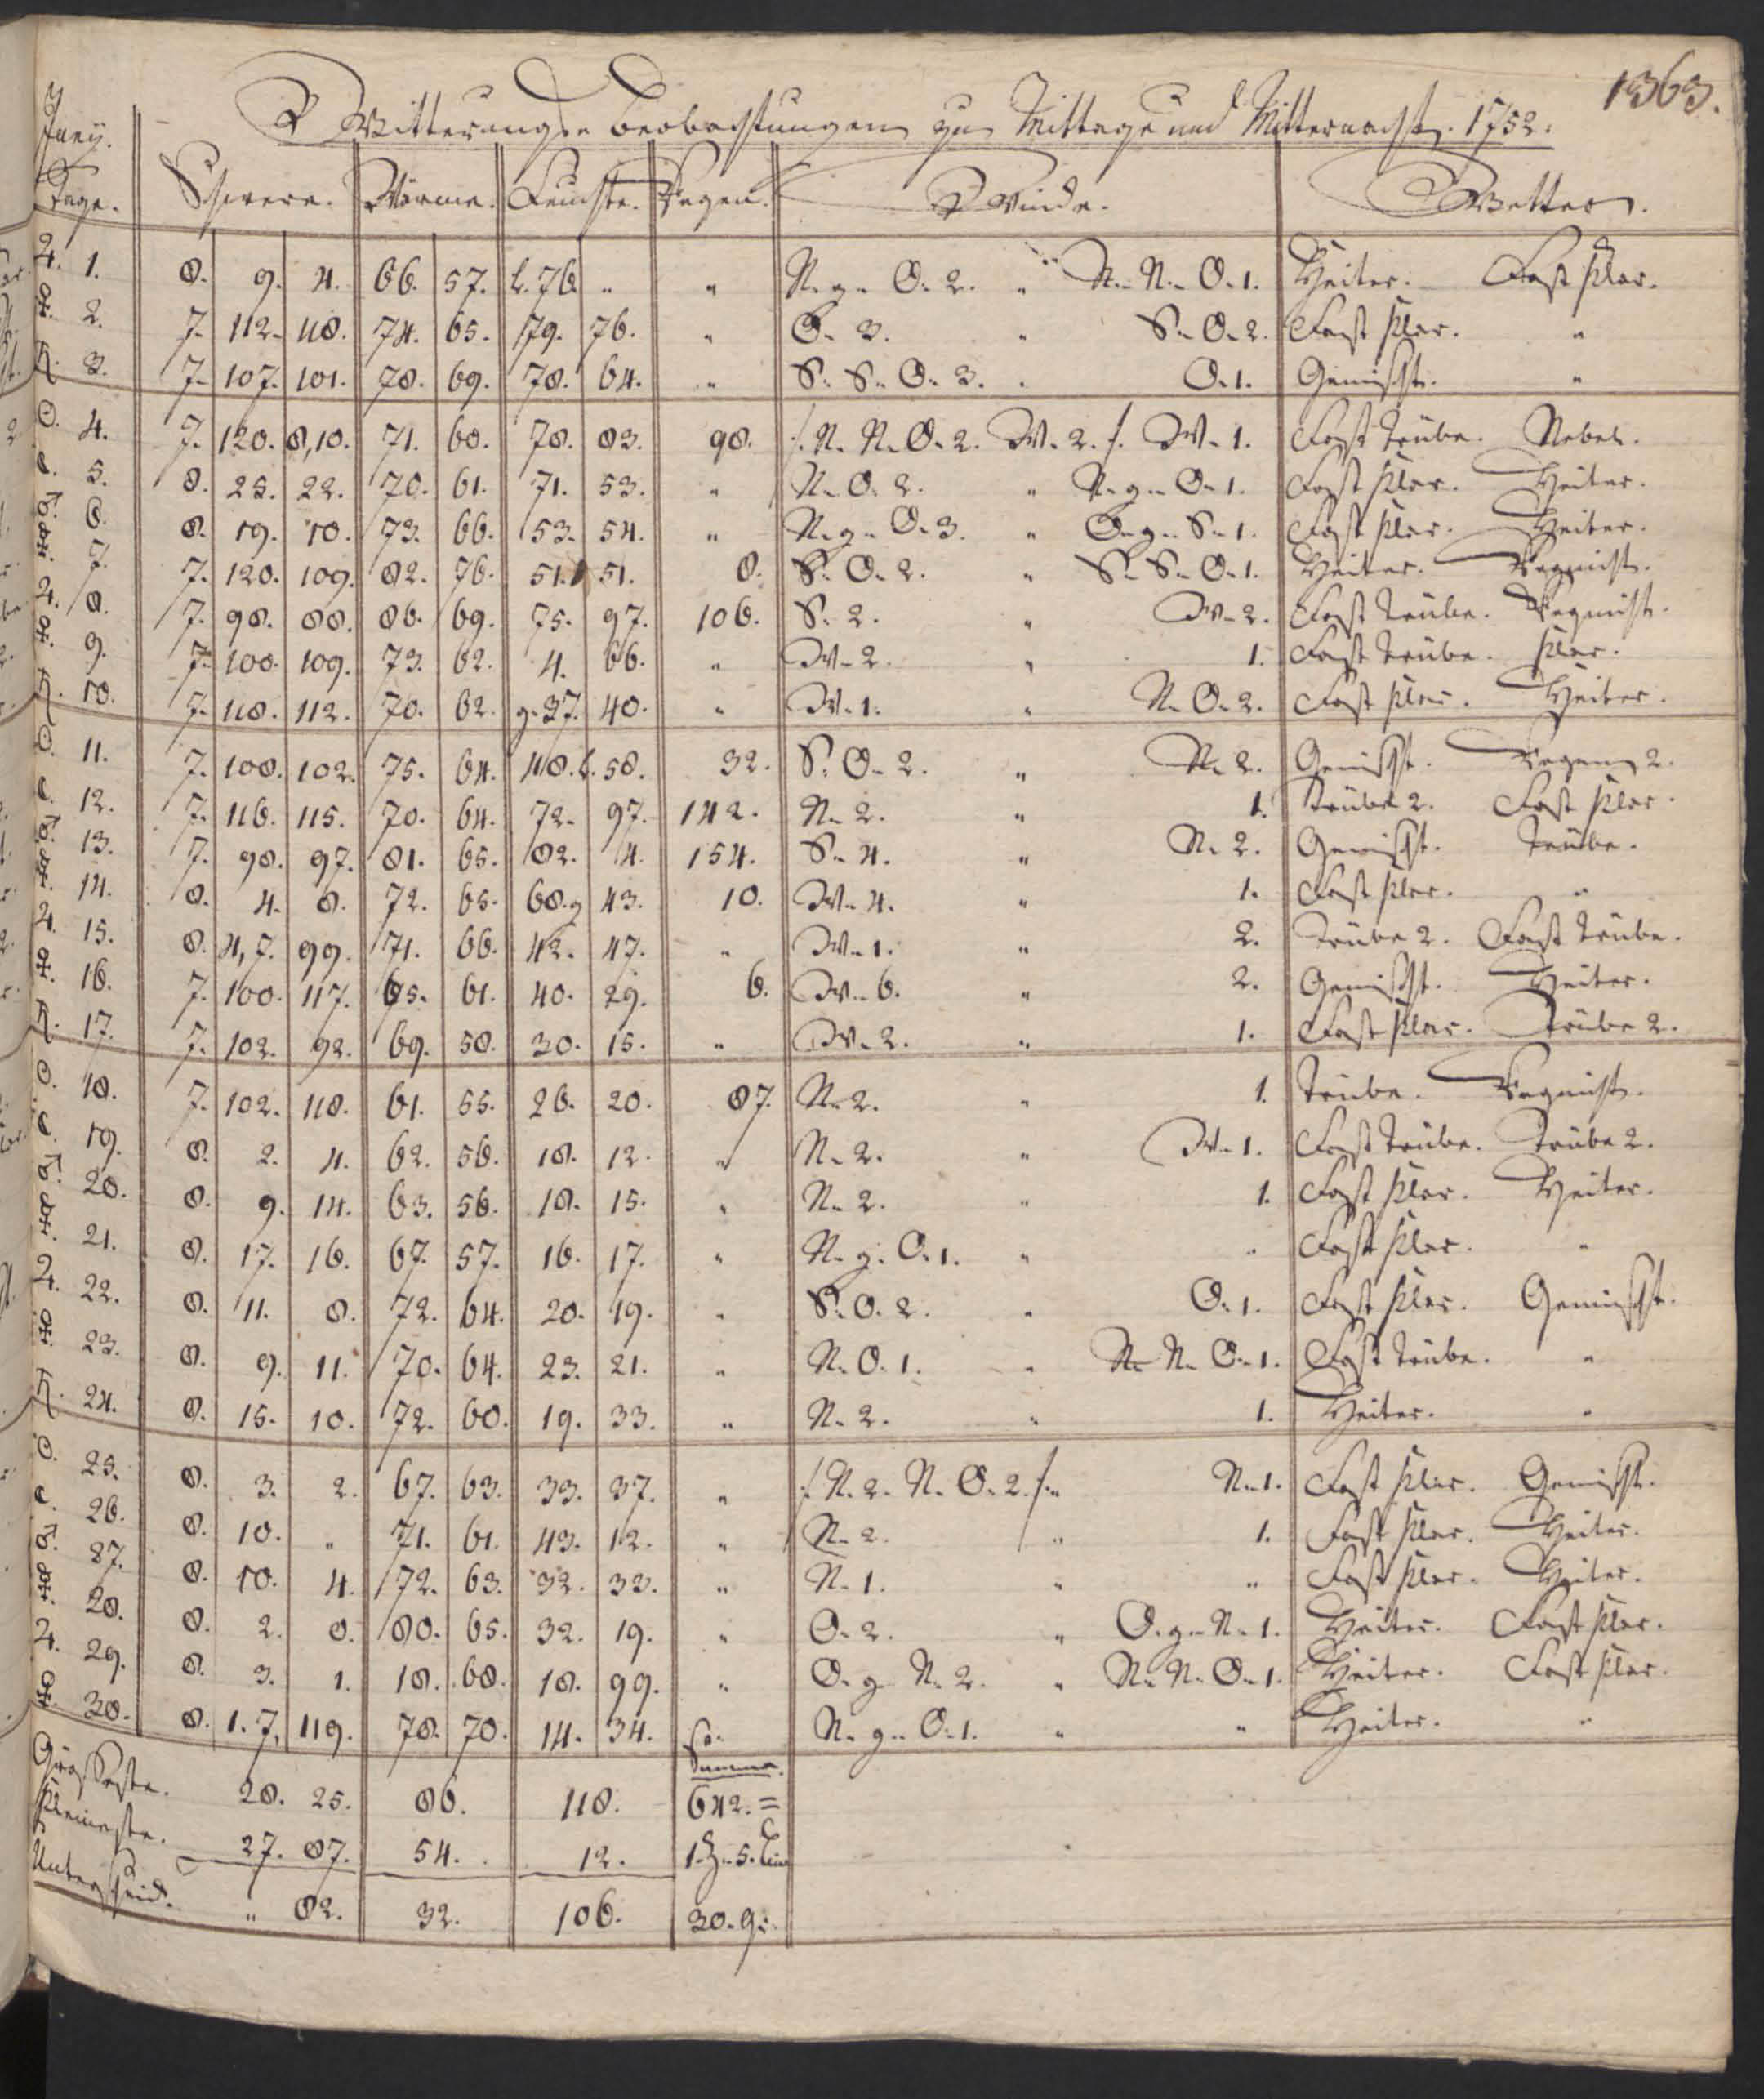 1363.
Juny. Witterungs-Beobachtungen zu Mittage und Mitternacht. 1752.
Tage. Schwere. Wärme. Feuchte. Regen. Winde. Wetter.
♃. 1. 8. 9. 4. 66. 57. 76. " " N. g. O. 2. " N. N. O. 1. Heiter. Fast klar.
♀. 2. 7. 112. 118. 74. 65. 79. 76. " O. 3. " S. O. 2. Fast klar. "
♄. 3. 7. 107. 101. 78. 69. 78. 64. " S. S. O. 3. " O. 1. Gemischt. "
☉. 4. 7. 120. 8,10. 71. 60. 78. 83. 98. /. N. N. O. 2. W. 2. /. W. 1. Fast trübe. Nebel.
☾. 5. 8. 25. 22. 70. 61. 71. 53. " N. O. 2. " N. g. O. 1. Fast klar. Heiter.
♂. 6. 8. 19. 10. 73. 66. 53. 54. " N. g. O. 3. " O. g. S. 1. Fast klar. Heiter.
☿. 7. 7. 120. 109. 82. 76. 51. 51. 8. S. O. 2. " S. S. O. 1. Heiter. Regnicht.
♃. 8. 7. 98. 88. 86. 69. 75. 97. 106. S. 2. " W. 2. Fast trübe. Regnicht.
♀. 9. 7. 100. 109. 73. 62. 4. 66. " W. 2. " 1. Fast trübe. klar.
♄. 10. 7. 118. 112. 70. 62. g. 37. 40. " W. 1. " N. O. 2. Fast klar. Heiter.
☉. 11. 7. 108. 102. 75. 64. 48. 58. 32. S. O. 2. " N. 2. Gemischt. Regen 2.
☾. 12. 7. 116. 115. 70. 64. 72. 97. 142. N. 2. " 1. Trübe 2. Fast klar.
♂. 13. 7. 98. 97. 81. 65. 82. 4. 154. S. 4. " N. 2. Gemischt. Trübe.
☿. 14. 8. 4. 8. 72. 65. 68. g 43. 10. W. 4. " 1. Fast klar. "
♃. 15. 8. 4,7. 99. 71. 66. 42. 47. " W. 1. " 2. Trübe 2. Fast trübe.
♀. 16. 7. 100. 117. 65. 61. 40. 29. 6. W. 6. " 2. Gemischt. Heiter.
♄. 17. 7. 102. 92. 69. 58. 30. 15. " W. 2. " 1. Fast klar. Trübe 2.
☉. 18. 7. 102. 118. 61. 55. 26. 20. 87. N. 2. " 1. Trübe. Regnicht.
☾. 19. 8. 2. 4. 62. 56. 18. 12. " N. 2. " W. 1. Fast trübe. Trübe 2.
♂. 20. 8. 9. 14. 63. 56. 18. 15. " N. 2. " 1. Fast klar. Heiter.
☿. 21. 8. 17. 16. 67. 57. 16. 17. " N. g. O. 1. " " Fast klar. "
♃. 22. 8. 11. 8. 72. 64. 20. 19. " S. O. 2. " O. 1. Fast klar. Gemischt.
♀. 23. 8. 9. 11. 70. 64. 23. 21. " N. O. 1. " N. N. O. 1. Fast trübe. "
♄. 24. 8. 15. 10. 72. 60. 19. 33. " N. 2. " 1. Heiter. "
☉. 25. 8. 3. 2. 67. 63. 33. 37. " /. N. 2. N. O. 2. /. " N. 1. Fast klar. Gemischt.
☾. 26. 8. 10. " 71. 61. 43. 12. " N. 2. " 1. Fast klar. Heiter.
♂. 27. 8. 10. 4. 72. 63. 32. 33. " N. 1. " " Fast klar. Heiter.
☿. 28. 8. 2. 0. 80. 65. 32. 19. " O. 2. " O. g. N. 1. Heiter. Fast klar.
♃. 29. 8. 3. 1. 18. 68. 18. 99. " O. g. N. 2. " N. N. O. 1. Heiter. Fast klar.
♀. 30. 8. 1. 7, 119. 78. 70. 14. 34. N. g. O. 1. " " Heiter. "
Summa.
Grösseste. 28. 25. 86. 118. 642. =
Kleineste. 27. 87. 54. 12. 1. Z. 5. Lin
Unterscheid. " 82. 32. 106. 30. Gr.